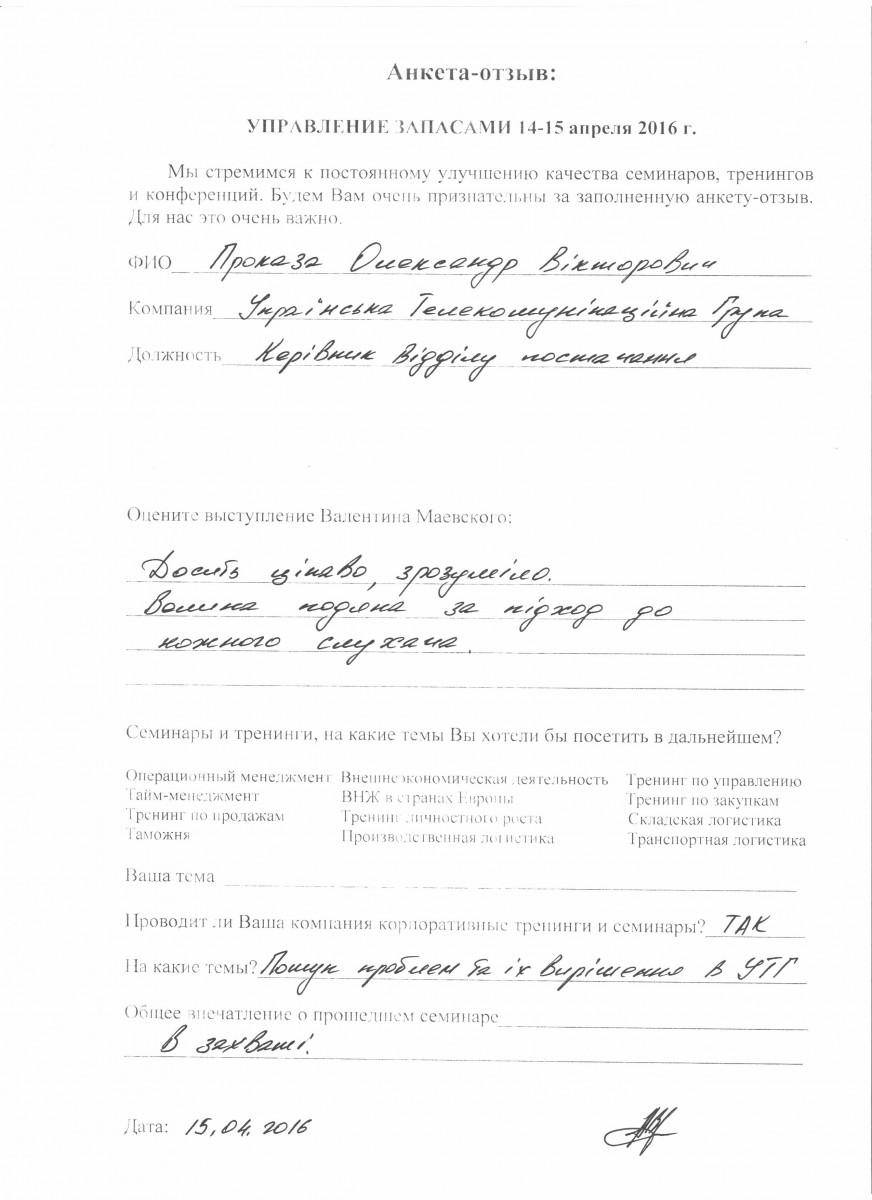 Анкета-отзыв:
УПРАВЛЕНИЕ ЗАПАСАМИ 14-15 апреля 2016 г.
Мы стремимся к постоянному улучшению качества семинаров, тренингов
и конференций. Будем Вам очень признательны за заполненную анкету-отзыв.
Для нас это очень важно.
ФИО Проказа Олександр Вікторович
Компания Українська Телекомунікаційна Група
Должность Керівник Відділу постачання
Оцените выступление Валентина Маевского:
Досить цікаво, зрозуміло.
Велика подяка за підход до
кожного слухача.
Семинары и тренинги, на какие темы Вы хотели бы посетить в дальнейшем?
Операционный менеджмент Внешнеэкономическая деятельность Тренинг по управлению
Тайм-менеджмент ВНЖ в странах Европы Тренинг по закупкам
Тренинг по продажам Тренинг личностного роста Складская логистика
Таможня Производственная логистика Транспортная логистика
Ваша тема
Проводит ли Ваша компания корпоративные тренинги и семинары? ТАК
На какие темы? Пошук проблем та їх вирішення в УТГ
Общее впечатление о прошедшем семинаре
В захваті.
Дата: 15.04.2016